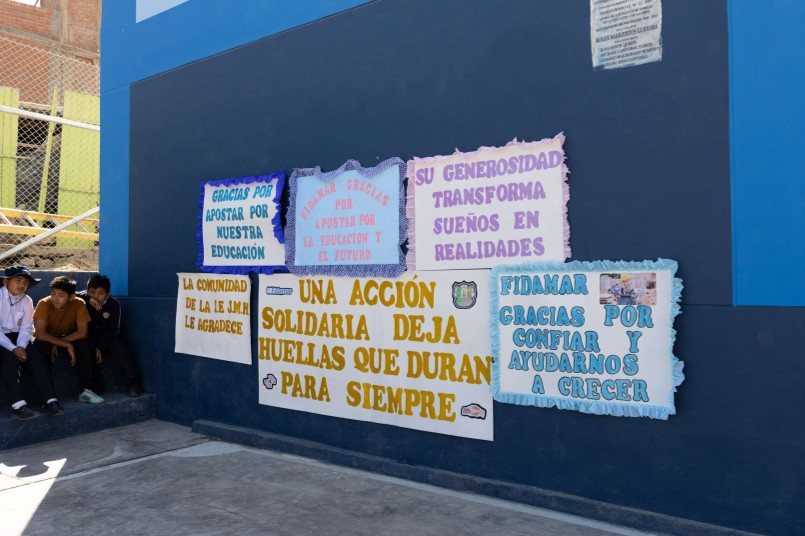 GRACIAS POR
APOSTAR POR
NUESTRA
EDUCACIÓN
FIDAMAR GRACIAS
POR
APOSTAR POR
LA EDUCACION Y
EL FUTURO
SU GENEROSIDAD
TRANSFORMA
SUEÑOS EN
REALIDADES
LA COMUNIDAD
DE LA I.E J.M.M
LE AGRADECE
UNA ACCIÓN
SOLIDARIA DEJA
HUELLAS QUE DURAN
PARA SIEMPRE
FIDAMAR
GRACIAS POR
CONFIAR Y
AYUDARNOS
A CRECER